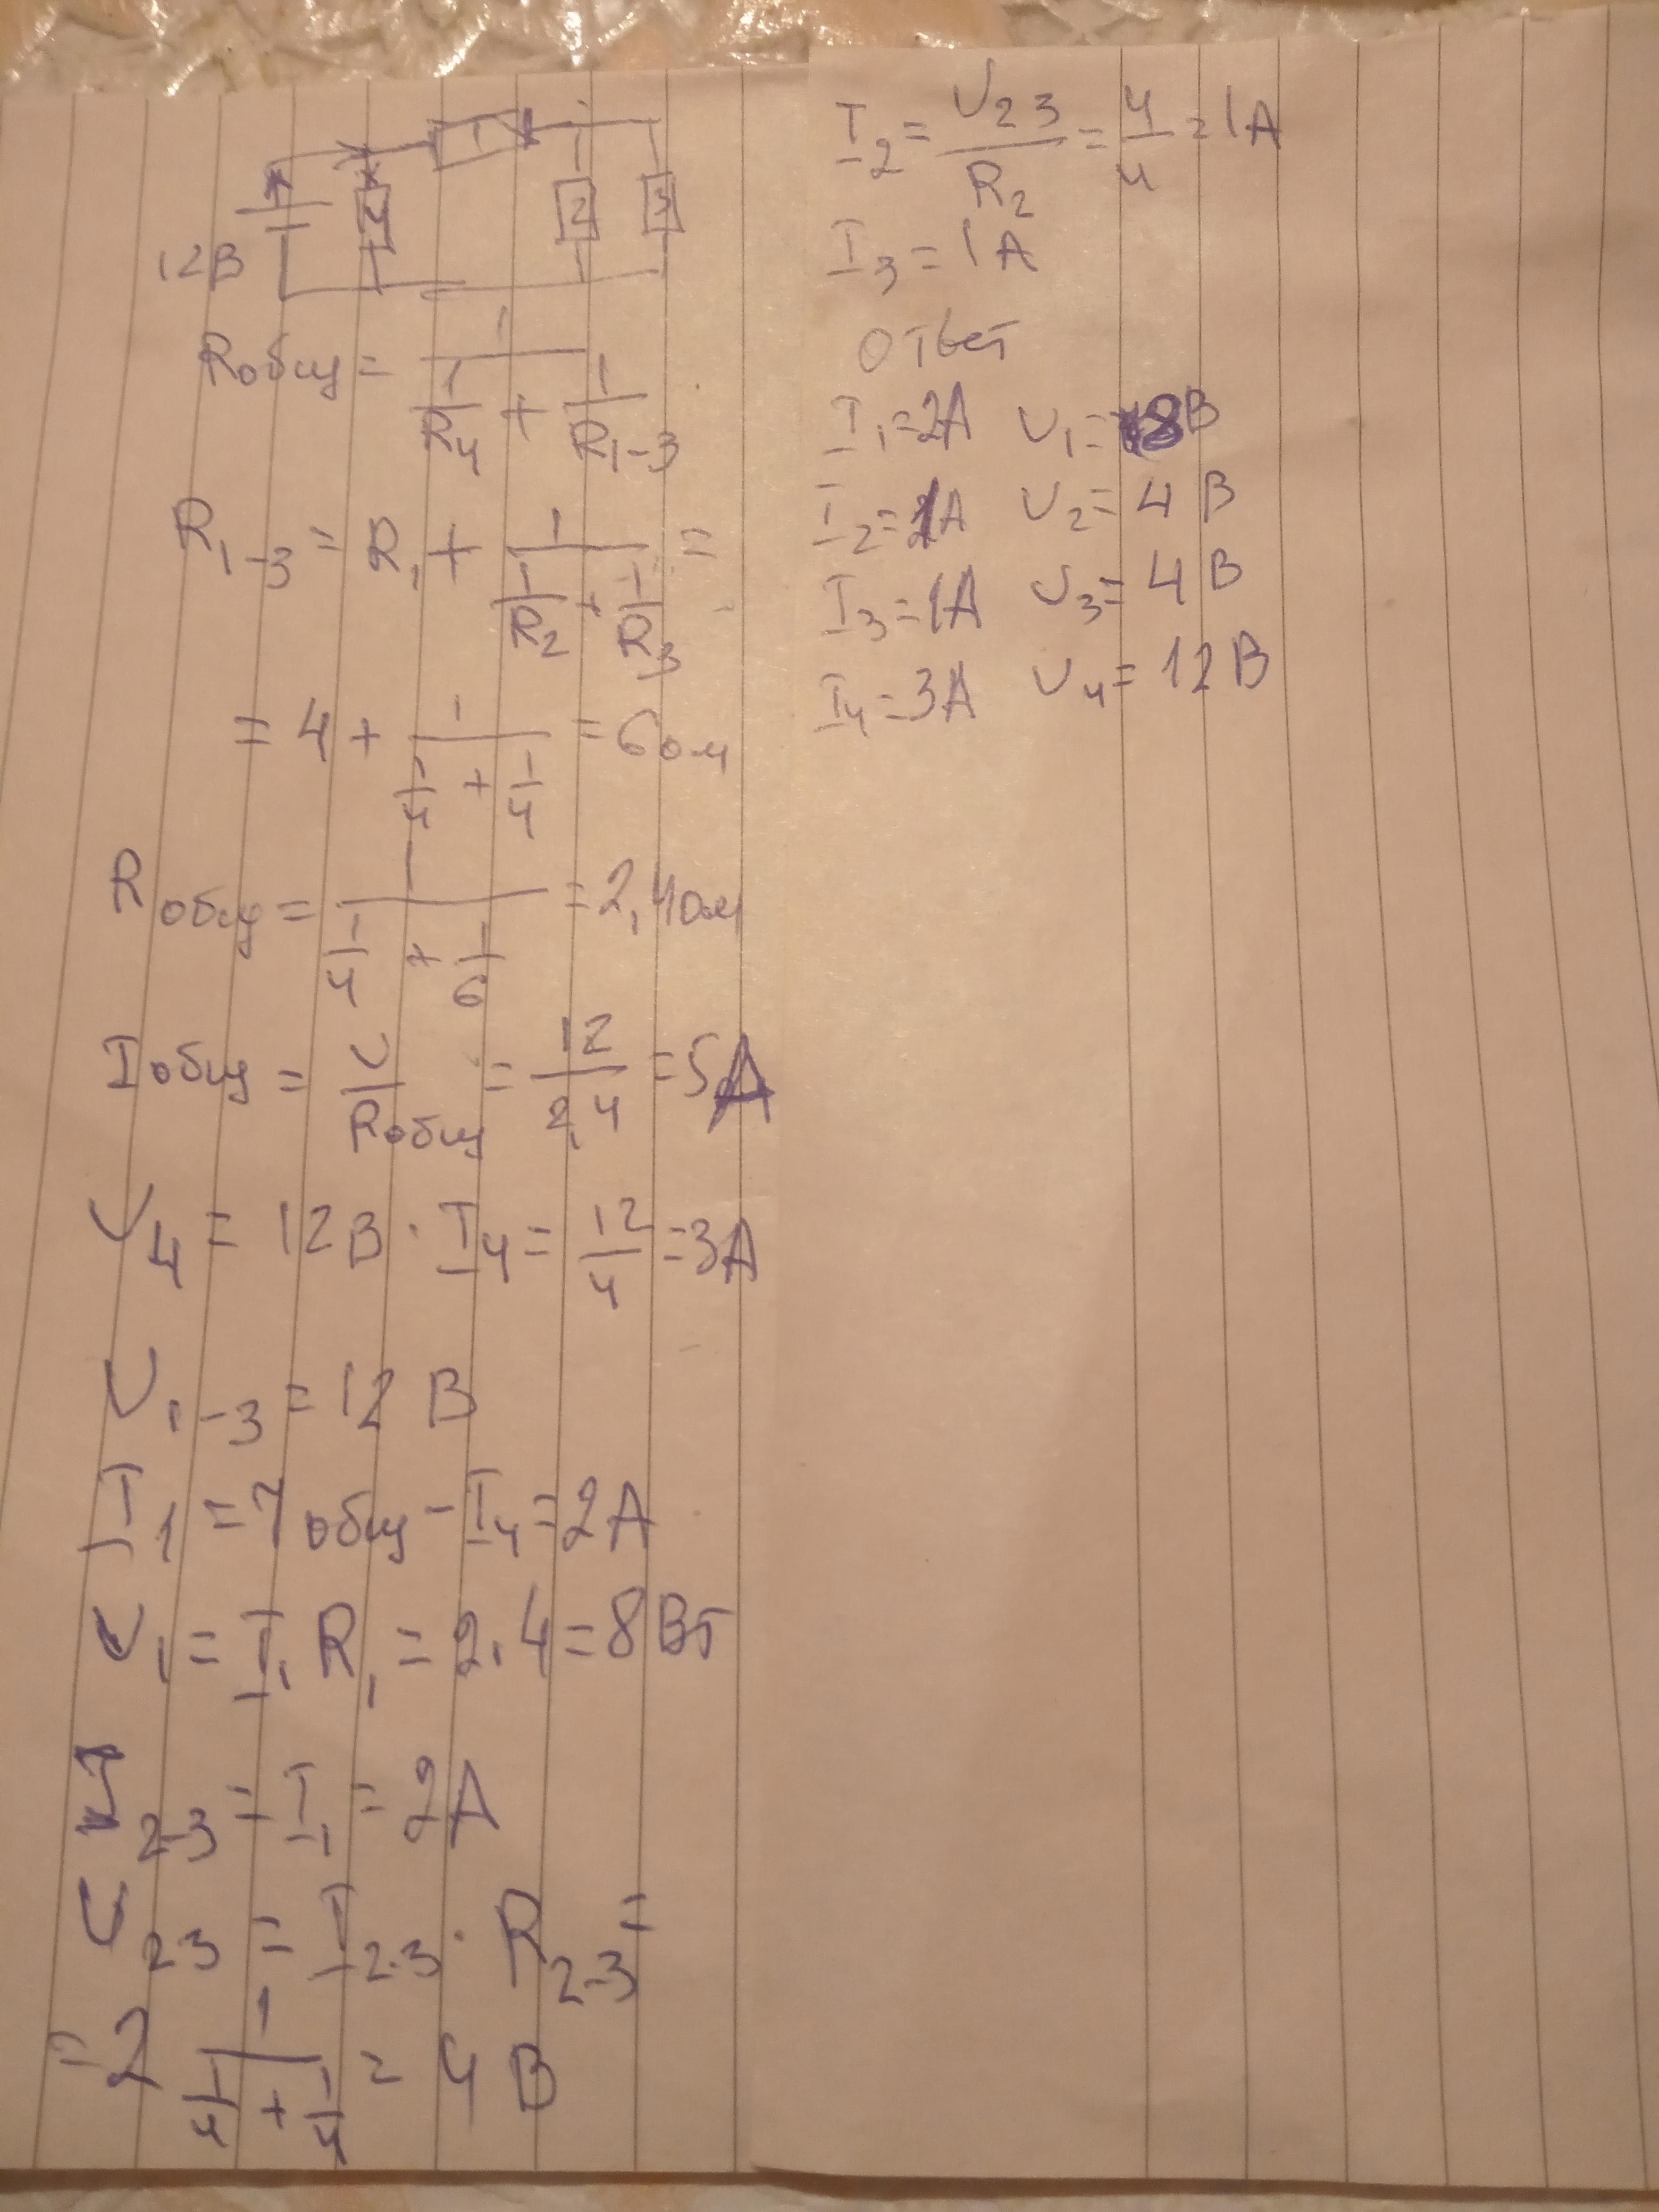 1
4 2 3
12В
Rобщ = 1 / (1/R4 + 1/R1-3)
R1-3 = R1 + 1 / (1/R2 + 1/R3) =
= 4 + 1 / (1/4 + 1/4) = 6 ом
Rобщ = 1 / (1/4 + 1/6) = 2,4 ом
Iобщ = U/Rобщ = 12/2,4 = 5A
U4 = 12В · I4 = 12/4 = 3A
U1-3 = 12 В
I1 = Iобщ - I4 = 2A
U1 = I1 R1 = 2·4 = 8 Вт
I2-3 = I1 = 2A
U23 = I2-3 · R2-3 =
= 2 1 / (1/4 + 1/4) = 4 В
I2 = U23/R2 = 4/4 = 1A
I3 = 1A
ответ
I1 = 2A U1 = 8В
I2 = 1A U2 = 4 В
I3 = 1A U3 = 4 В
I4 = 3A U4 = 12 В